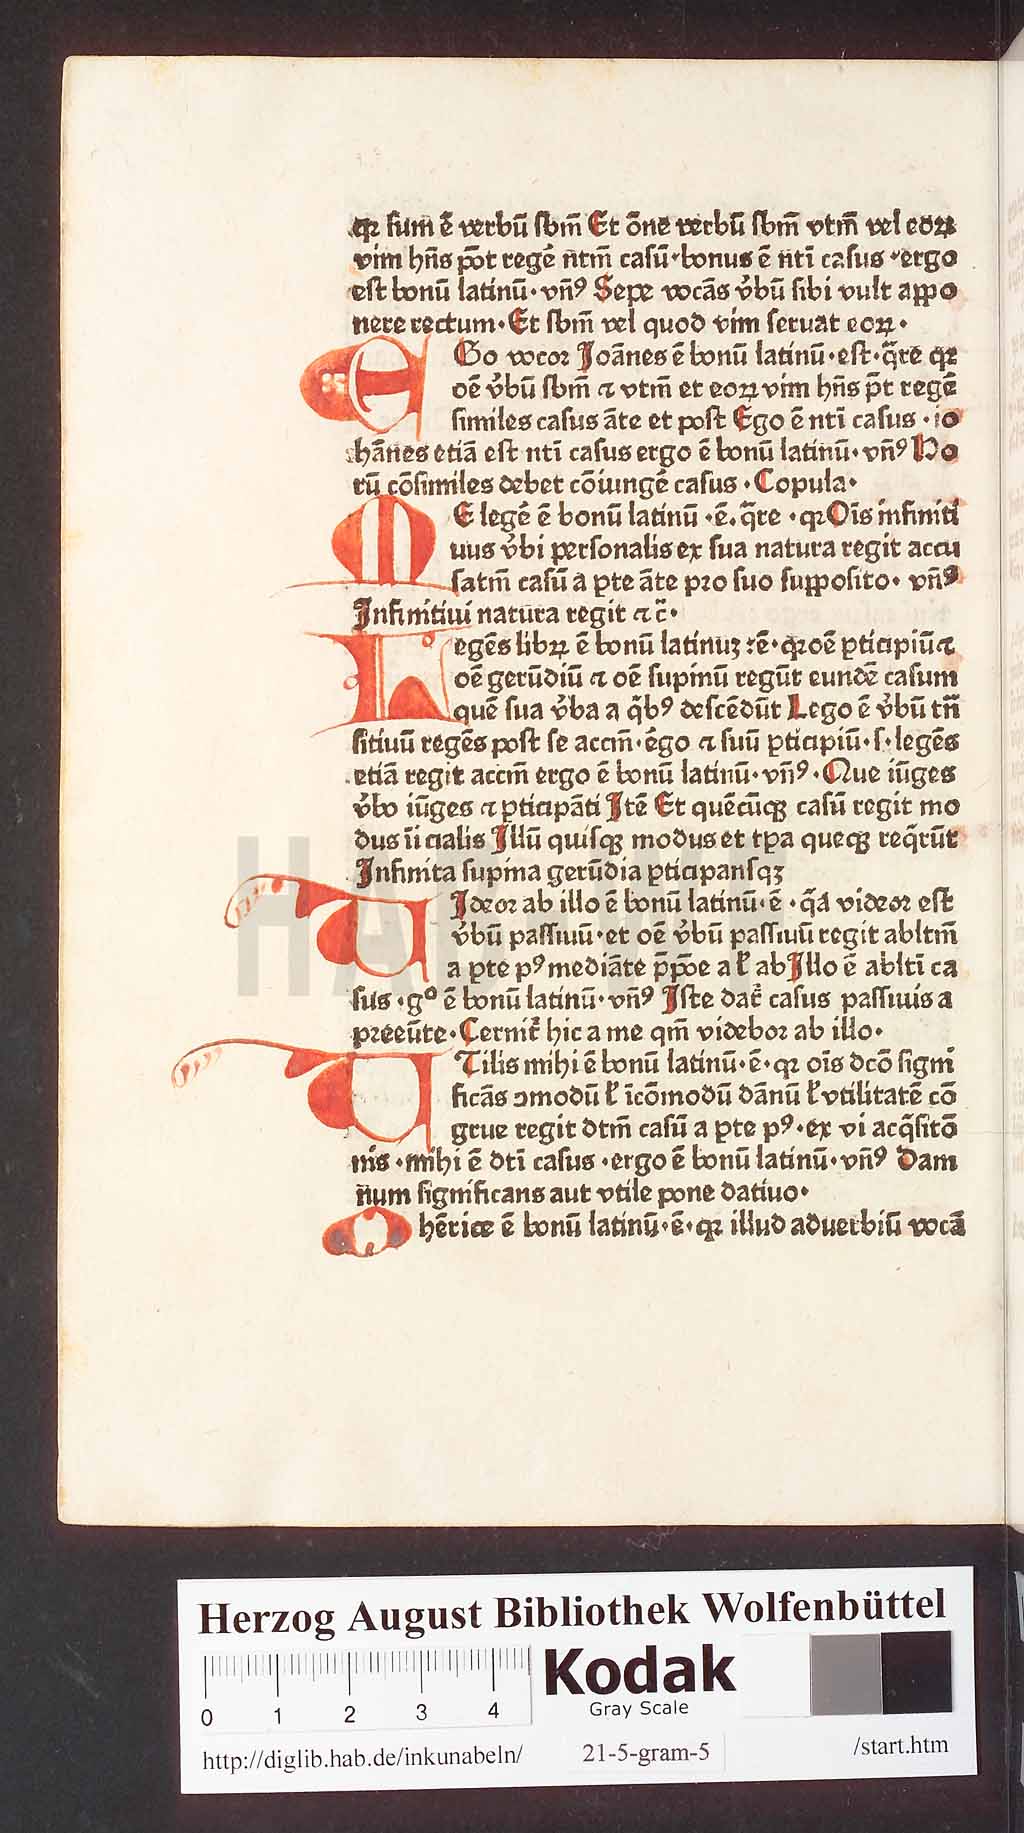 qꝛ ſum ē verbū ſbm̄ Et ōne verbū ſbm̄ vtm̄ vel eoꝝ
vim hn̄s pōt regē̄ ntm̄ caſū·bonus ē nti caſus·ergo
eſt bonū latinū·vn̄ꝰ Sepe vocās v̓bū ſibi vult appo
nere rectum·Et ſbm̄ vel quod vim ſeruat eoꝝ·
EGo vocoꝛ Joānes ē bonū latinū·eſt·q̄re qꝛ
oē v̓bū ſbm̄ ⁊ vtm̄ et eoꝝ vim hn̄s pt̄ regē
ſimiles caſus āte et poſt Ego ē nti caſus·io
hānes etiā eſt nti caſus ergo ē bonū latinū·vn̄ꝰ Ho
rū cōſimiles debet cōiungē caſus·Copula·
ME legē ē bonū latinū·ē·q̄re·qꝛ Oīs infiniti
uus v̓bi perſonalis ex ſua natura regit accu
ſatm̄ caſū a ꝑte āte pꝛo ſuo ſuppoſito·vn̄ꝰ
Jnfinitiui natura regit ⁊ c̄·
Legēs libꝝ ē bonū latinuꝫ :ē·qꝛ oē ꝑticipiū ⁊
oē gerūdiū ⁊ oē ſupinū regūt eundē caſum
quē ſua v̓ba a q̄bꝰ deſcēdūt Lego ē v̓bū tn̄
ſitiuū regēs poſt ſe accm̄·ēgo ⁊ ſuū ꝑticipiū·ſ·legēs
etiā regit accm̄ ergo ē bonū latinū·vn̄ꝰ·Que iūges
v̓bo iūges ⁊ ꝑticipāti Jtē Et quēcūqꝫ caſū regit mo
dus īicialis Jllū quiſqꝫ modus et tꝑa queqꝫ req̄rūt
Jnfinita ſupina gerūdia ꝑticipanſqꝫ
UJdeoꝛ ab illo ē bonū latinū·ē·q̄a videoꝛ eſt
v̓bū paſſiuū·et oē v̓bū paſſiuū regit abltm̄
a ꝑte pꝰ mediāte p̄pōe a ł ab Jllo ē ablti ca
ſus·gº ē bonū latinū·vn̄ꝰ Jſte dat̄ caſus paſſiuis a
preeūte·Cernit̄ hic a me qm̄ videboꝛ ab illo·
UTilis mihi ē bonū latinū·ē·qꝛ oīs dcō ſigni
ficās ↄmodū ł icōmodū dānū ł vtilitatē cō
grue regit dtm̄ caſū a ꝑte pꝰ·ex vi acq̄ſitō
nis·mihi ē dti caſus·ergo ē bonū latinū·vn̄ꝰ Dam
num ſignificans aut vtile pone datiuo·
Ohērice ē bonū latinū·ē·qꝛ illud aduerbiū vocā
HAB WF
Herzog August Bibliothek Wolfenbüttel
0 1 2 3 4
Kodak
Gray Scale
http://diglib.hab.de/inkunabeln/ 21-5-gram-5 /start.htm